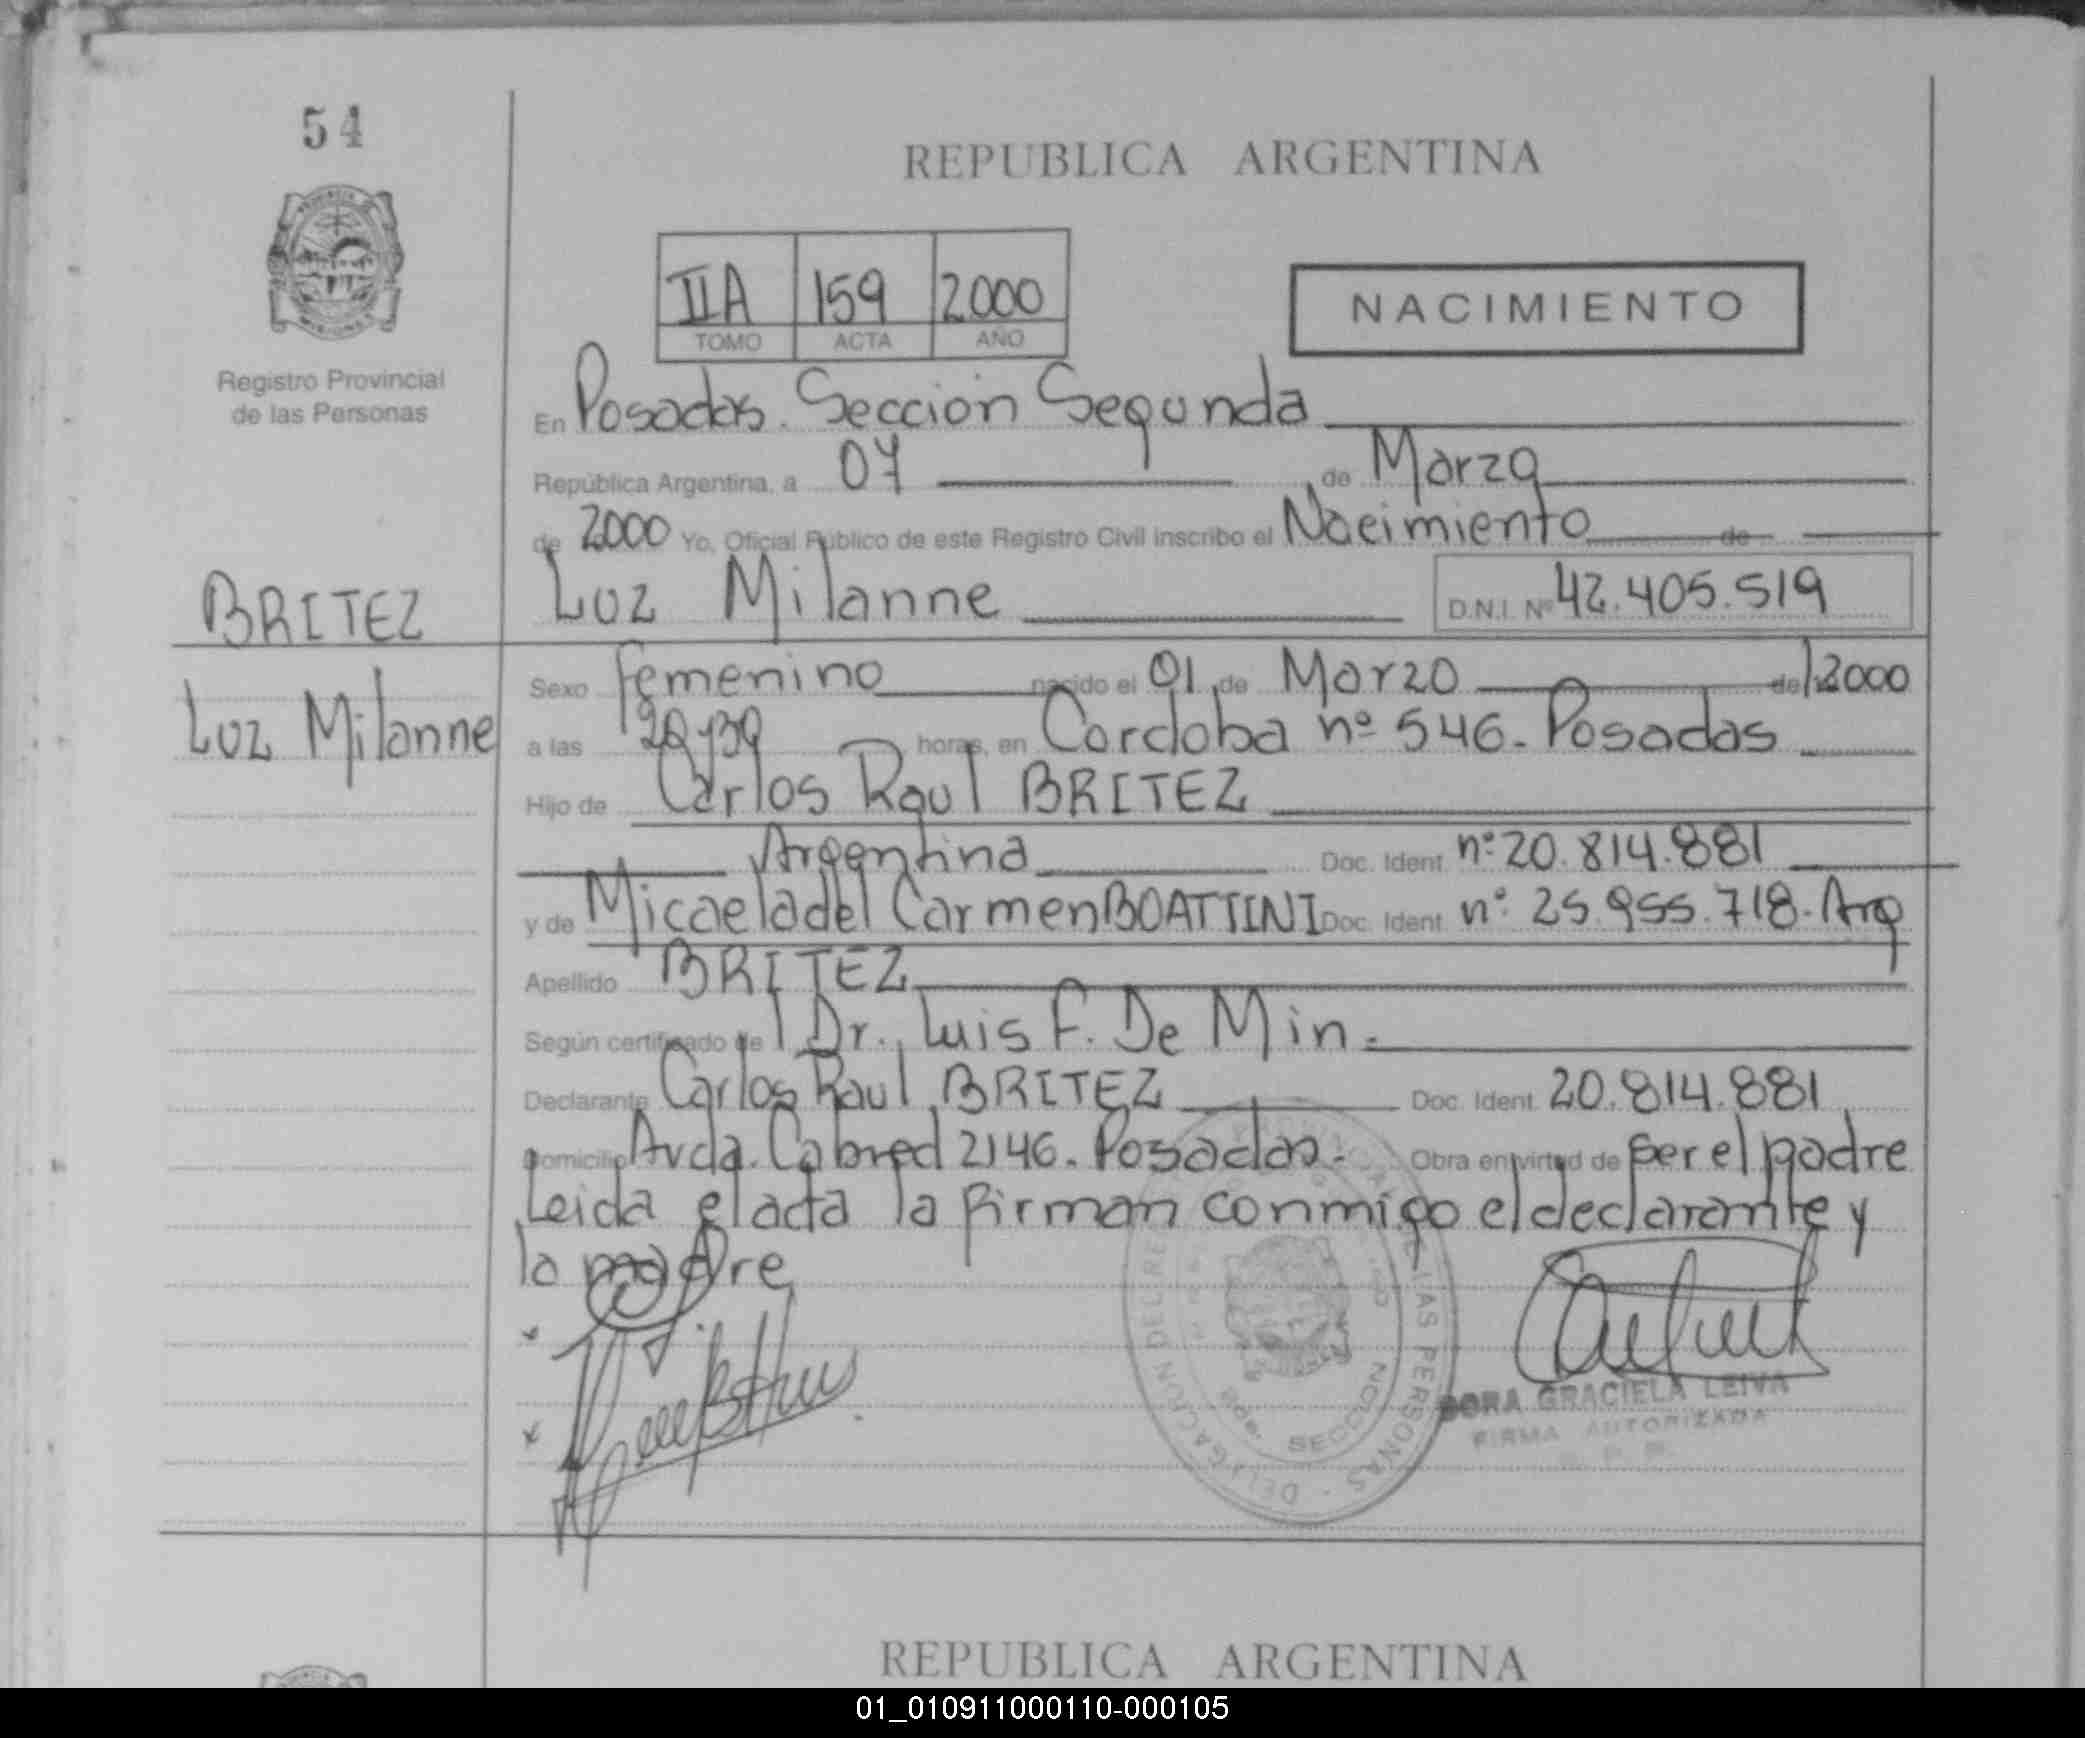 54
REPUBLICA ARGENTINA
IIA 159 2000
TOMO ACTA AÑO
NACIMIENTO
Registro Provincial
de las Personas
En Posadas. Sección Segunda
República Argentina, a 07 de Marzo
de 2000 Yo, Oficial Público de este Registro Civil inscribo el Nacimiento de
BRITEZ
Luz Milanne
Luz Milanne D.N.I. Nº 42.405.519
Sexo femenino nacido el 01 de Marzo de 2000
a las horas, en Cordoba nº 546. Posadas
Hijo de Carlos Raul BRITEZ
Argentina Doc. Ident. nº 20.814.881
y de Micaela del Carmen BOATTINI Doc. Ident. nº 25.955.718. Arg
Apellido BRITEZ
Según certificado de l Dr. Luis F. De Min.
Declarante Carlos Raul BRITEZ Doc. Ident. 20.814.881
Domicilio Avda. Cabred 2146. Posadas. Obra en virtud de ser el padre
Leida el acta la firman conmigo el declarante y
la madre
DORA GRACIELA LEIVA
FIRMA AUTORIZADA
DELEGACION DEL REGISTRO PROVINCIAL DE LAS PERSONAS
2da. SECCION
REPUBLICA ARGENTINA
01_010911000110-000105